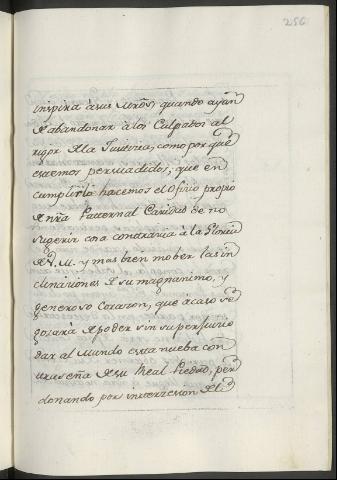 256
inspira à sus Mrõs, quando ayan
de abandonar à los Culpados al
rigor de la Justicia, como por que
estemos persuadidos, que en
cumplirla hacemos el Oficio propio
de nrã Patternal Caridad de no
sugerir cosa contraria a la
de V. M. y mas bien mober las in
clinasiones de su magnanimo, y
generoso Corazon, que acaso se
gosarà de poder sin su perjuicio
dar al Mundo esta nueba con
traseña de su Real Piedad, per
donando por intersecion de